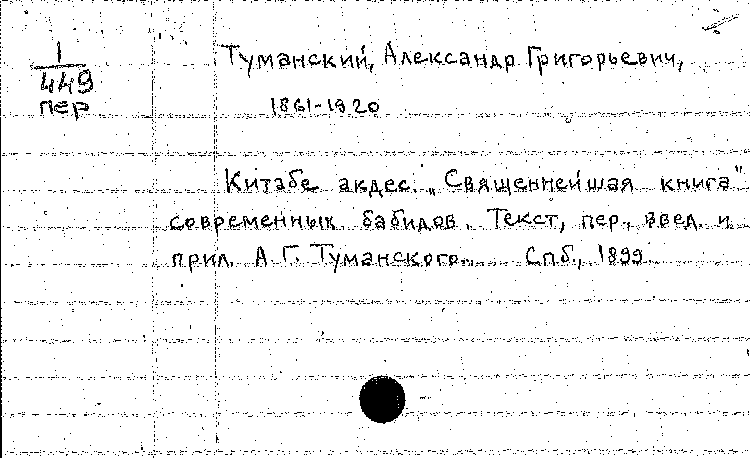 1
449
пер
Туманский, Александр Григорьевич,
1861-1920
Китабе акдес. „Священнейшая книга"
современных бабидов. Текст, пер., введ. и
прил. А. Г. Туманского.... Спб., 1899.